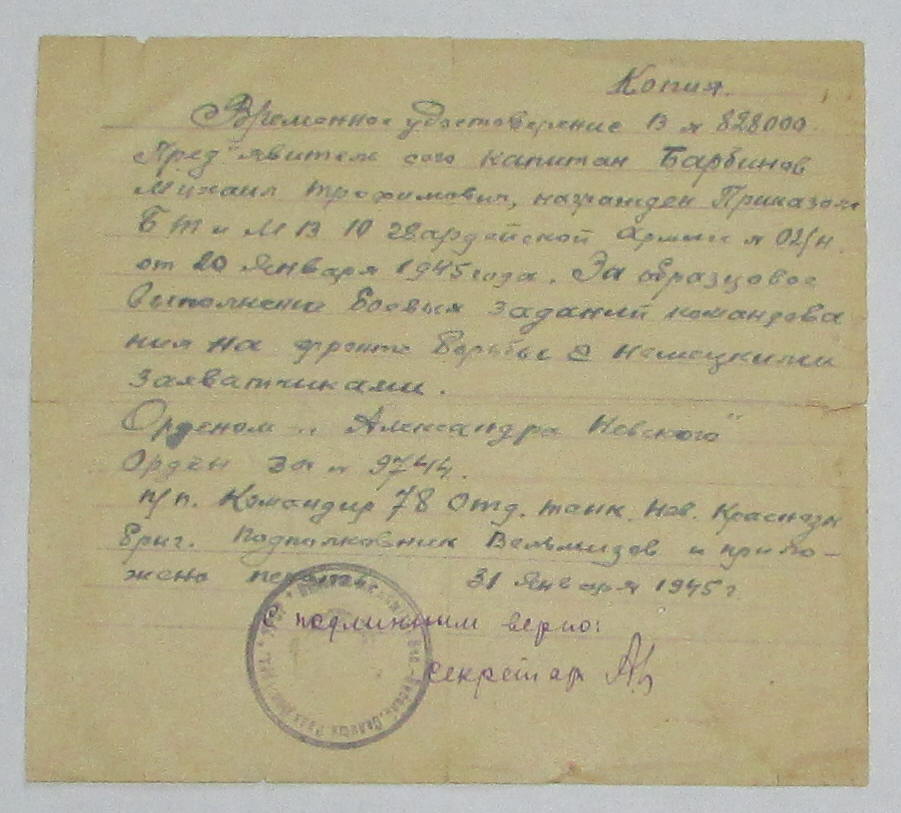 Копия.
Временное удостоверение В № 828000.
Пред"явитель сего капитан Барбинов
Михаил Трофимович, награжден Приказом
БТ и МВ 10 Гвардейской Армии № 02/н.
от 20 Января 1945 года. За образцовое
выполнение боевых заданий командова
ния на фронте борьбы с немецкими
захватчиками.
Орденом „Александра Невского"
Орден за № 9744.
п/п. Командир 78 Отд. танк. Нев. Краснозн
бриг. Подполковник Вельмизов и прило-
жена печать 31 Января 1945 г
С подлинным верно:
секретар